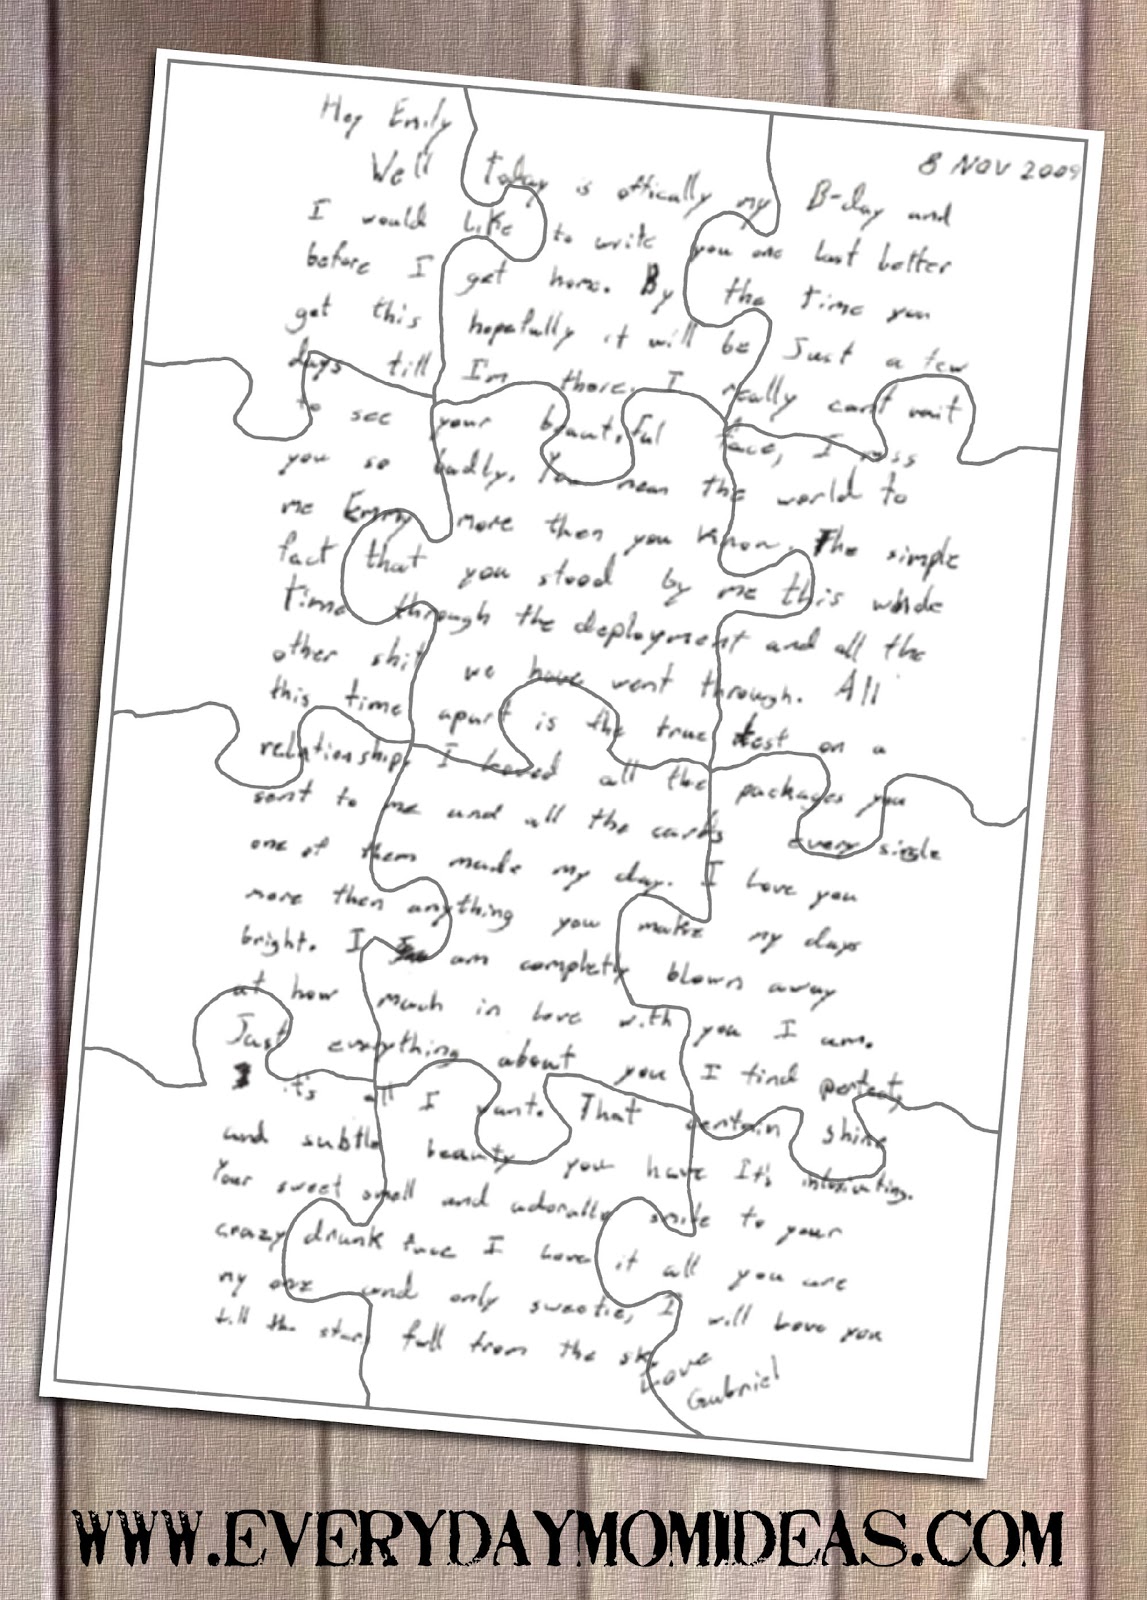 Hey Emily
8 NOV 2009
Well Today is offically my B-day and
I would Like to write you one last letter
before I get home. By the time you
get this hopefully it will be Just a few
days till I'm there. I really cant wait
to see your beautiful face, I miss
you so badly. You mean the world to
me Emmy more then you know. The simple
fact that you stood by me this whole
time through the deployment and all the
other shit we have went through. All
this time apart is the true test on a
relationship, I loved all the packages you
sent to me and all the cards every single
one of them made my day. I Love you
more then anything you make my days
bright. I am completly blown away
at how much in love with you I am.
Just everything about you I find perfect,
it's all I want. That certain shine
and subtle beauty you have It's intoxicating.
Your sweet smell and adorable smile to your
crazy drunk face I Love it all you are
my one and only sweetie, I will Love you
till the stars fall from the sky
Love
Gabriel
WWW.EVERYDAYMOMIDEAS.COM